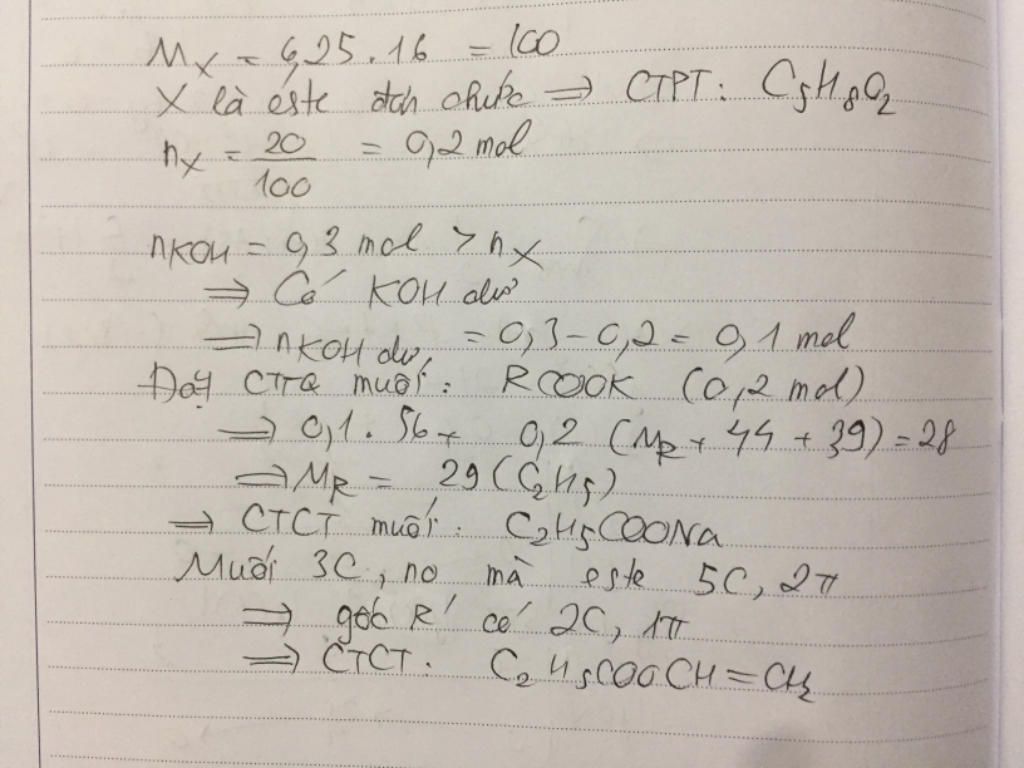 M_X = 6,25.16 = 100
X là este đơn chức ⇒ CTPT: C₅H₈O₂
n_X = 20/100 = 0,2 mol
n_KOH = 0,3 mol > n_X
⇒ Có KOH dư
⇒ n_KOH dư = 0,3 - 0,2 = 0,1 mol
Đặt CTTQ muối: RCOOK (0,2 mol)
⇒ 0,1.56 + 0,2 (M_R + 44 + 39) = 28
⇒ M_R = 29 (C₂H₅)
⇒ CTCT muối: C₂H₅COONa
Muối 3C, no mà este 5C, 2π
⇒ gốc R' có 2C, 1π
⇒ CTCT: C₂H₅COOCH=CH₂